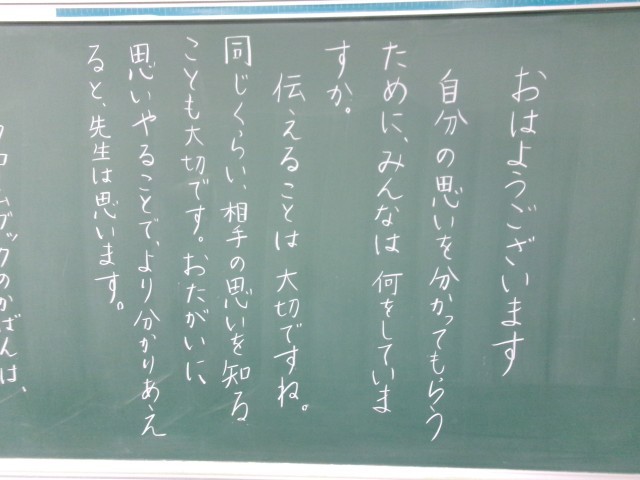 おはようございます
自分の思いを分かってもらう
ために、みんなは何をしていま
すか。
伝えることは大切ですね。
同じくらい、相手の思いを知る
ことも大切です。おたがいに、
思いやることで、より分かりあえ
ると、先生は思います。
クロームブックのかばんは、